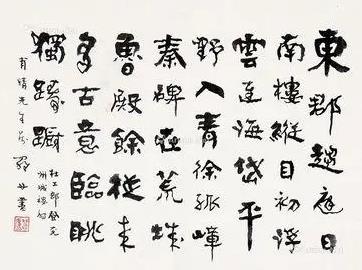 東郡趨庭日
南樓縱目初浮
雲連海岱平
野入青徐孤嶂
秦碑在荒城
魯殿餘從來
多古意臨眺
獨躊躇
杜工部登兗
州城樓
晴先生
羅丹書